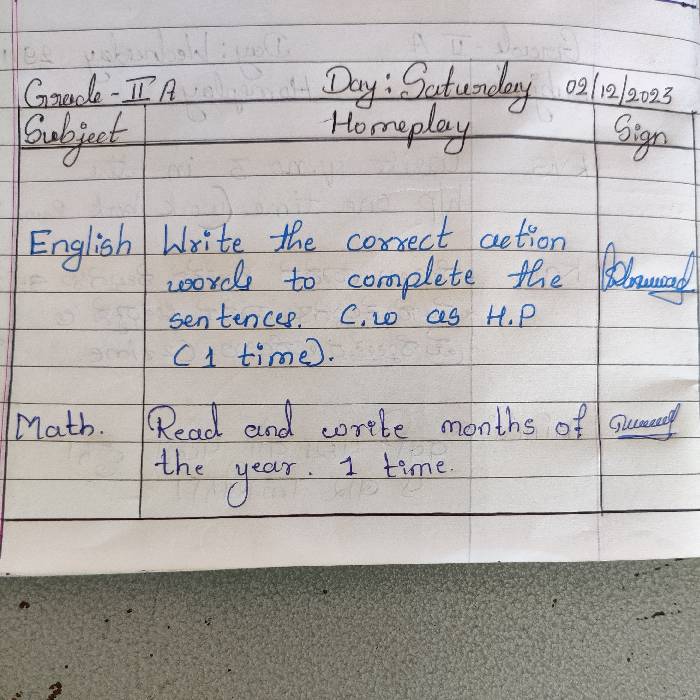 Grade - II A Day: Saturday 02/12/2023
Subject Homeplay Sign
English Write the correct action
words to complete the
sentences. C.w as H.P
(1 time).
Math. Read and write months of
the year. 1 time.